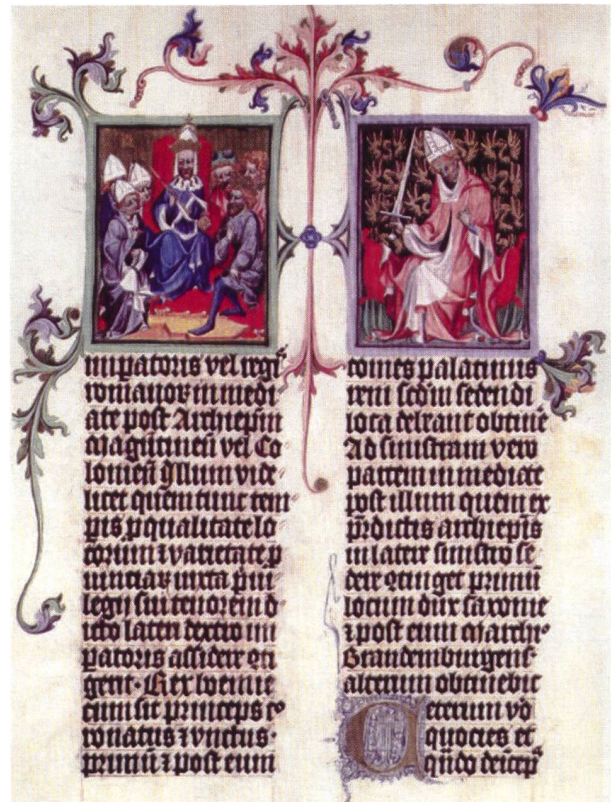 imꝑatoris vel regꝭ
romanoꝝ inmedi
ate post Archiepm̄
magūtineñ vel Co
lonieñ illum vide
licet quem tunc tem
pis ꝓ qualitate lo
corum ⁊ varietate ꝓ
uinciaꝝ iuxta pui
legij sui tenorem d
icto latere dextro im
ꝑatoris assidere ꝯtī
gent. Rex boemie
cum sit princeps co
ronatus ⁊ vnctus.
primū ⁊ post eum
comes palatinus
reni scdm sedendi
loca debeant obtinē
Ad sinistram vero
partem inmediate
post illum quem ex
p̄dictis archiepīs
in latere sinistro se
dere ꝯtinget primū
locum dux saxonie
⁊ post eum marchio
Brandemburgens̄
alterum obtinebit
Ceterum vo
quocies et
qn̄do deincep̄